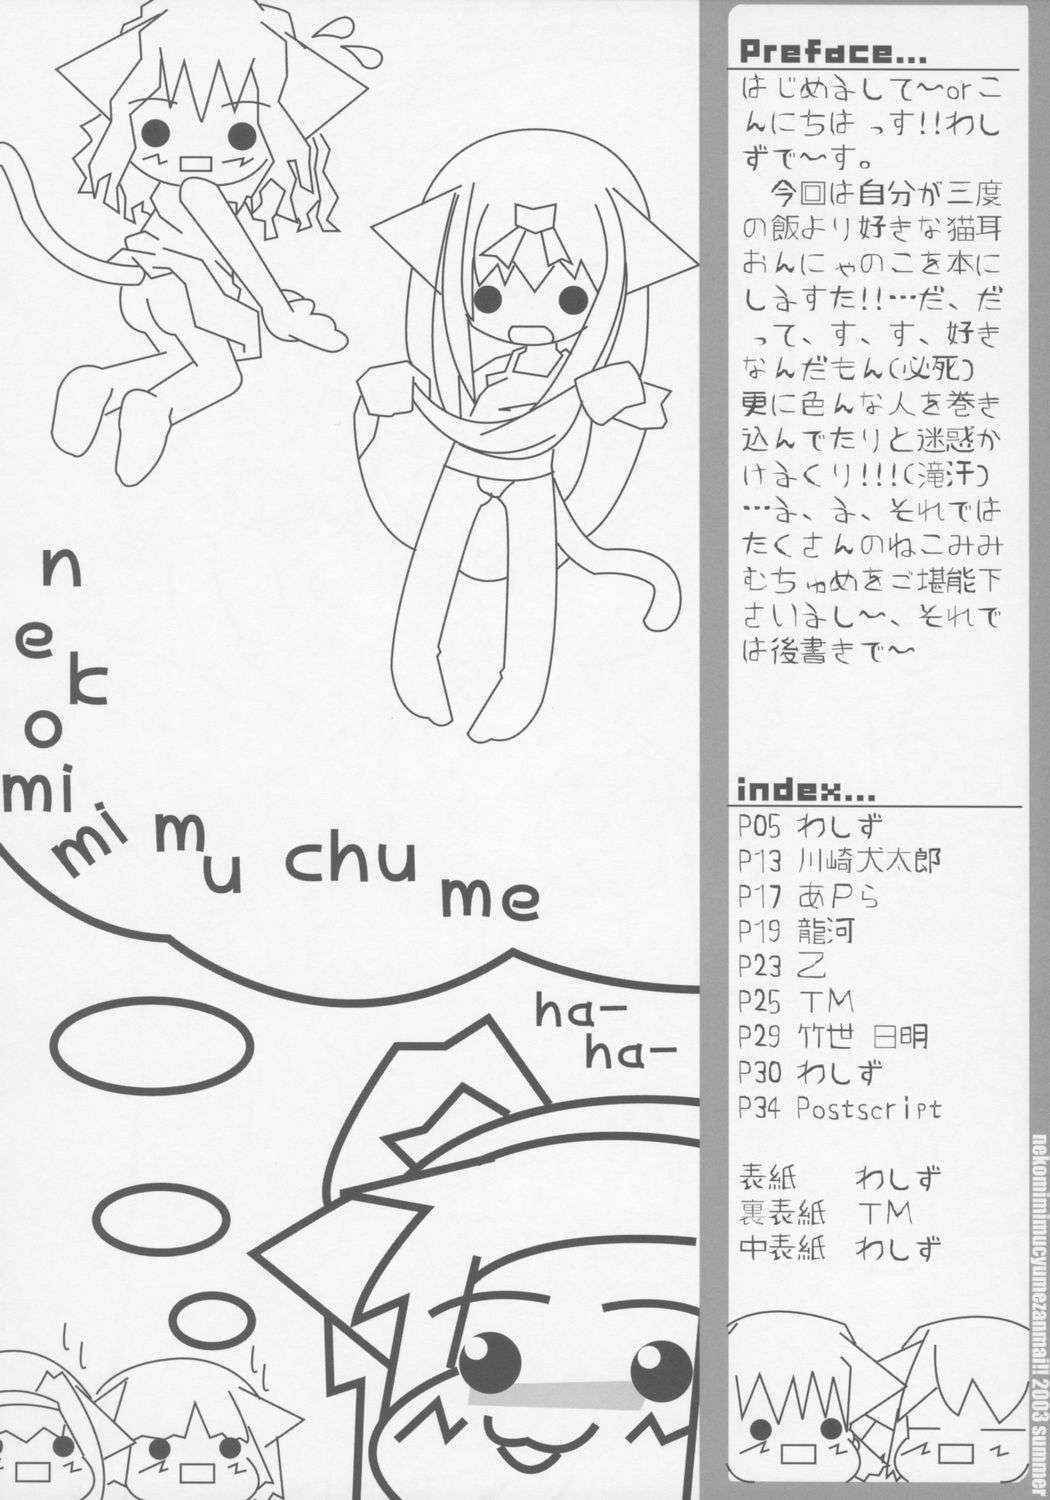 Preface...
はじめまして〜orこ
んにちは っす!!わし
ずで〜す。
　今回は自分が三度
の飯より好きな猫耳
おんにゃのこを本に
しますた!!…だ、だ
って、す、す、好き
なんだもん(必死)
更に色んな人を巻き
込んでたりと迷惑か
けまくり!!!(滝汗)
…ま、ま、それでは
たくさんのねこみみ
むちゅめをご堪能下
さいまし〜、それで
は後書きで〜
nekomimi mi mu chu me
ha-
ha-
index...
P05 わしず
P13 川崎犬太郎
P17 あPら
P19 龍河
P23 乙
P25 TM
P29 竹世 日明
P30 わしず
P34 Postscript
表紙　わしず
裏表紙　TM
中表紙　わしず
nekomimimucyumezanmai!! 2003 summer